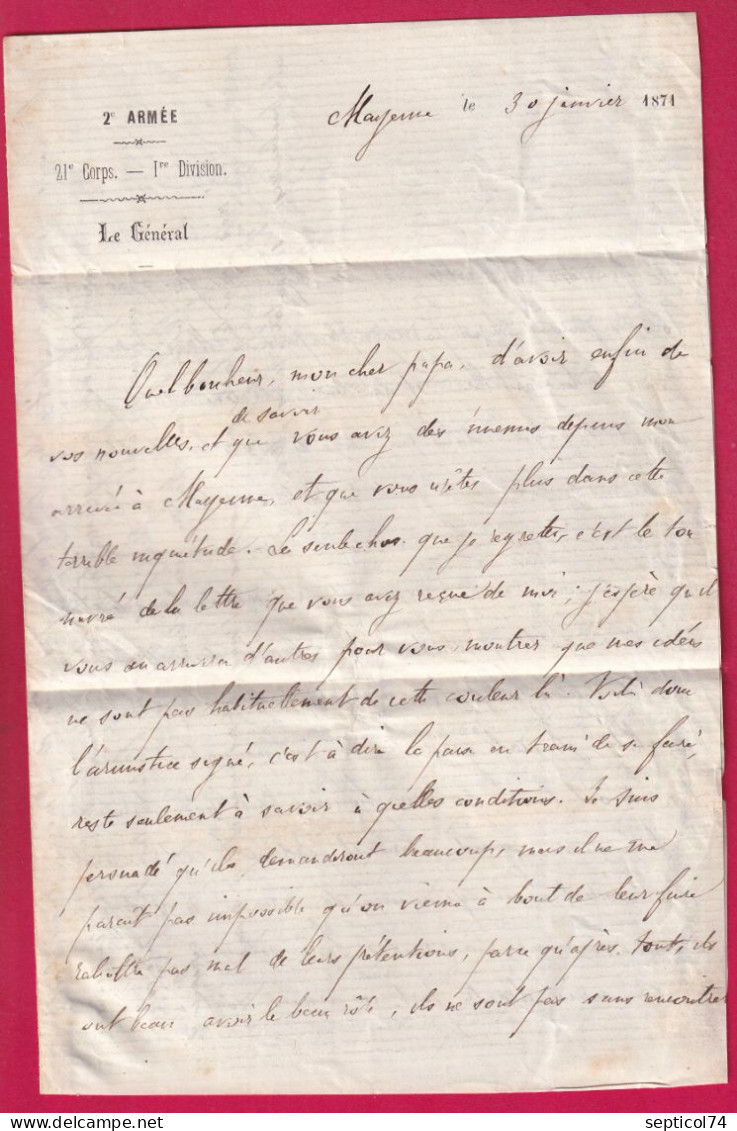 2e ARMÉE
21e Corps. — Ire Division.
Le Général
Mayenne le 30 janvier 1871
Quel bonheur, mon cher papa, d'avoir enfin de
vos nouvelles, et de savoir que vous avez des miennes depuis mon
arrivée à Mayenne, et que vous n'êtes plus dans cette
terrible inquiétude. La seule chose que je regrette, c'est le ton
navré de la lettre que vous avez reçue de moi; j'espère qu'il
vous en arrivera d'autres pour vous montrer que mes idées
ne sont pas habituellement de cette couleur là. Voilà donc
l'armistice signé, c'est à dire la paix en train de se faire,
reste seulement à savoir à quelles conditions. Je suis
persuadé qu'ils demanderont beaucoup, mais il ne me
paraît pas impossible qu'on vienne à bout de leur faire
rabattre pas mal de leurs prétentions, parce qu'après tout, ils
ont beau avoir le beau rôle, ils ne sont pas sans rencontrer
septicol74